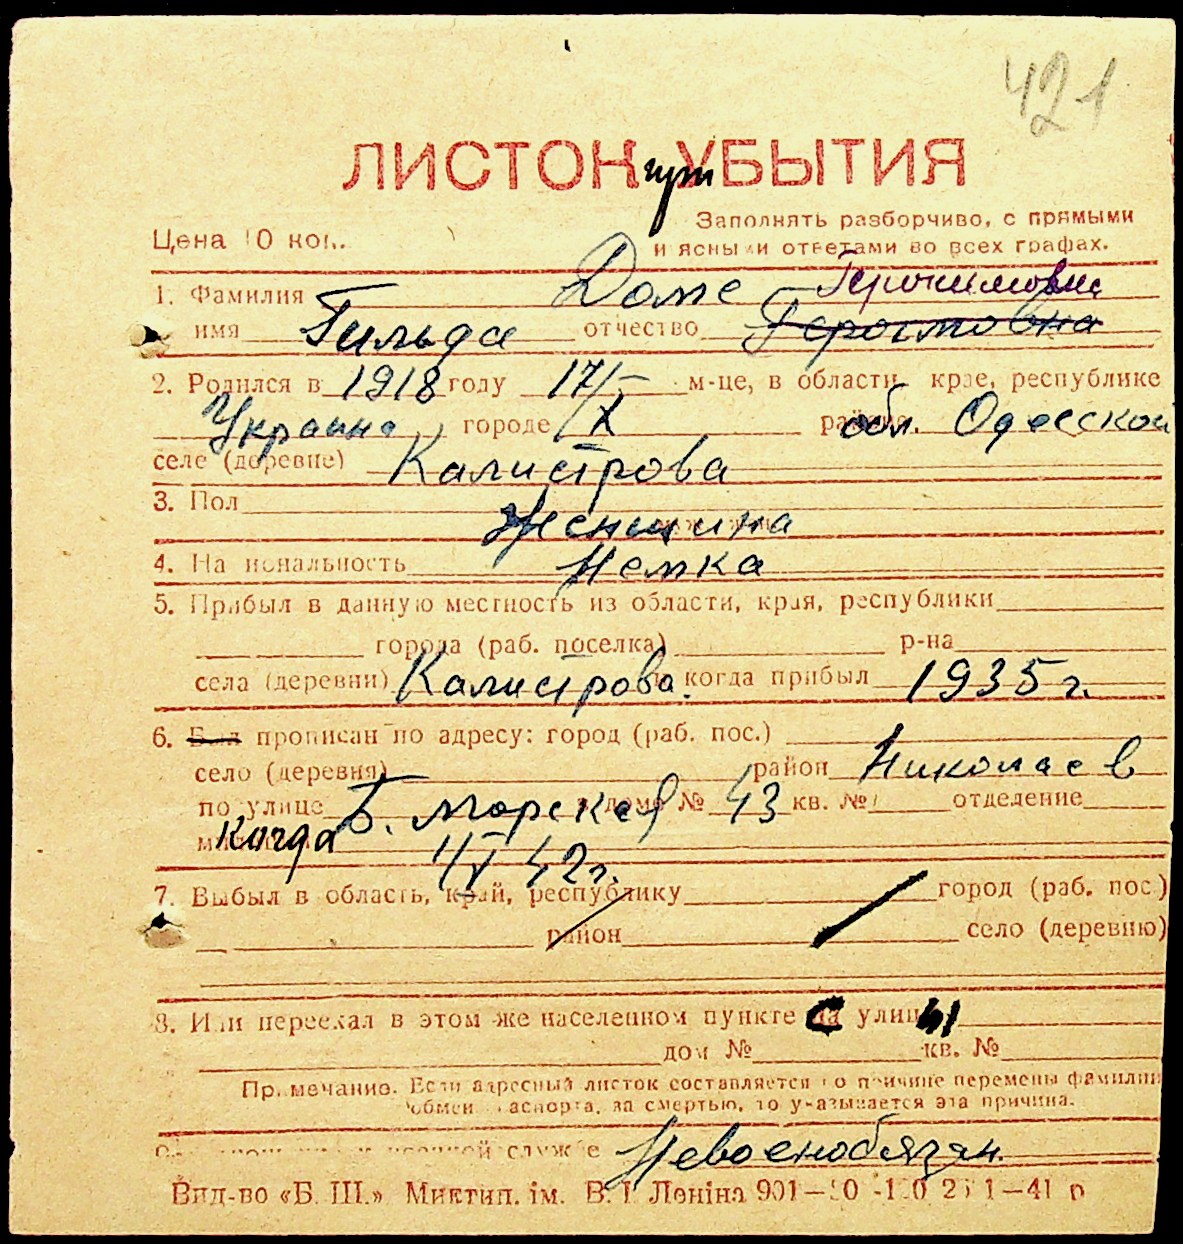 421
ЛИСТОК УБЫТИЯ
Заполнять разборчиво, с прямыми
Цена 10 коп. и ясными ответами во всех графах.
1. Фамилия Доме Герочимовна
имя Гильда отчество Героимовна
2. Родился в 1918 году 17/ м-це, в области, крае, республике
Украина городе X районе обл. Одесской
селе (деревне) Калистрова
3. Пол Женщина
4. Национальность Немка
5. Прибыл в данную местность из области, края, республики
города (раб. поселка) р-на
села (деревни) Калистрова. и когда прибыл 1935 г.
6. Был прописан по адресу: город (раб. пос.)
село (деревня) район Николаев
по улице Б. морской в доме № 43 кв. № отделение
Когда 4/V 42 г.
7. Выбыл в область, край, республику город (раб. пос.)
район село (деревню)
8. Или переехал в этом же населенном пункте С улицы
дом № кв. №
Примечание. Если адресный листок составляется по причине перемены фамилии
обмен паспорта, за смертью, то указывается эта причина.
службе Невоенобязан.
Вид-во «Б. Ш.» Миктип. ім. В. І. Леніна